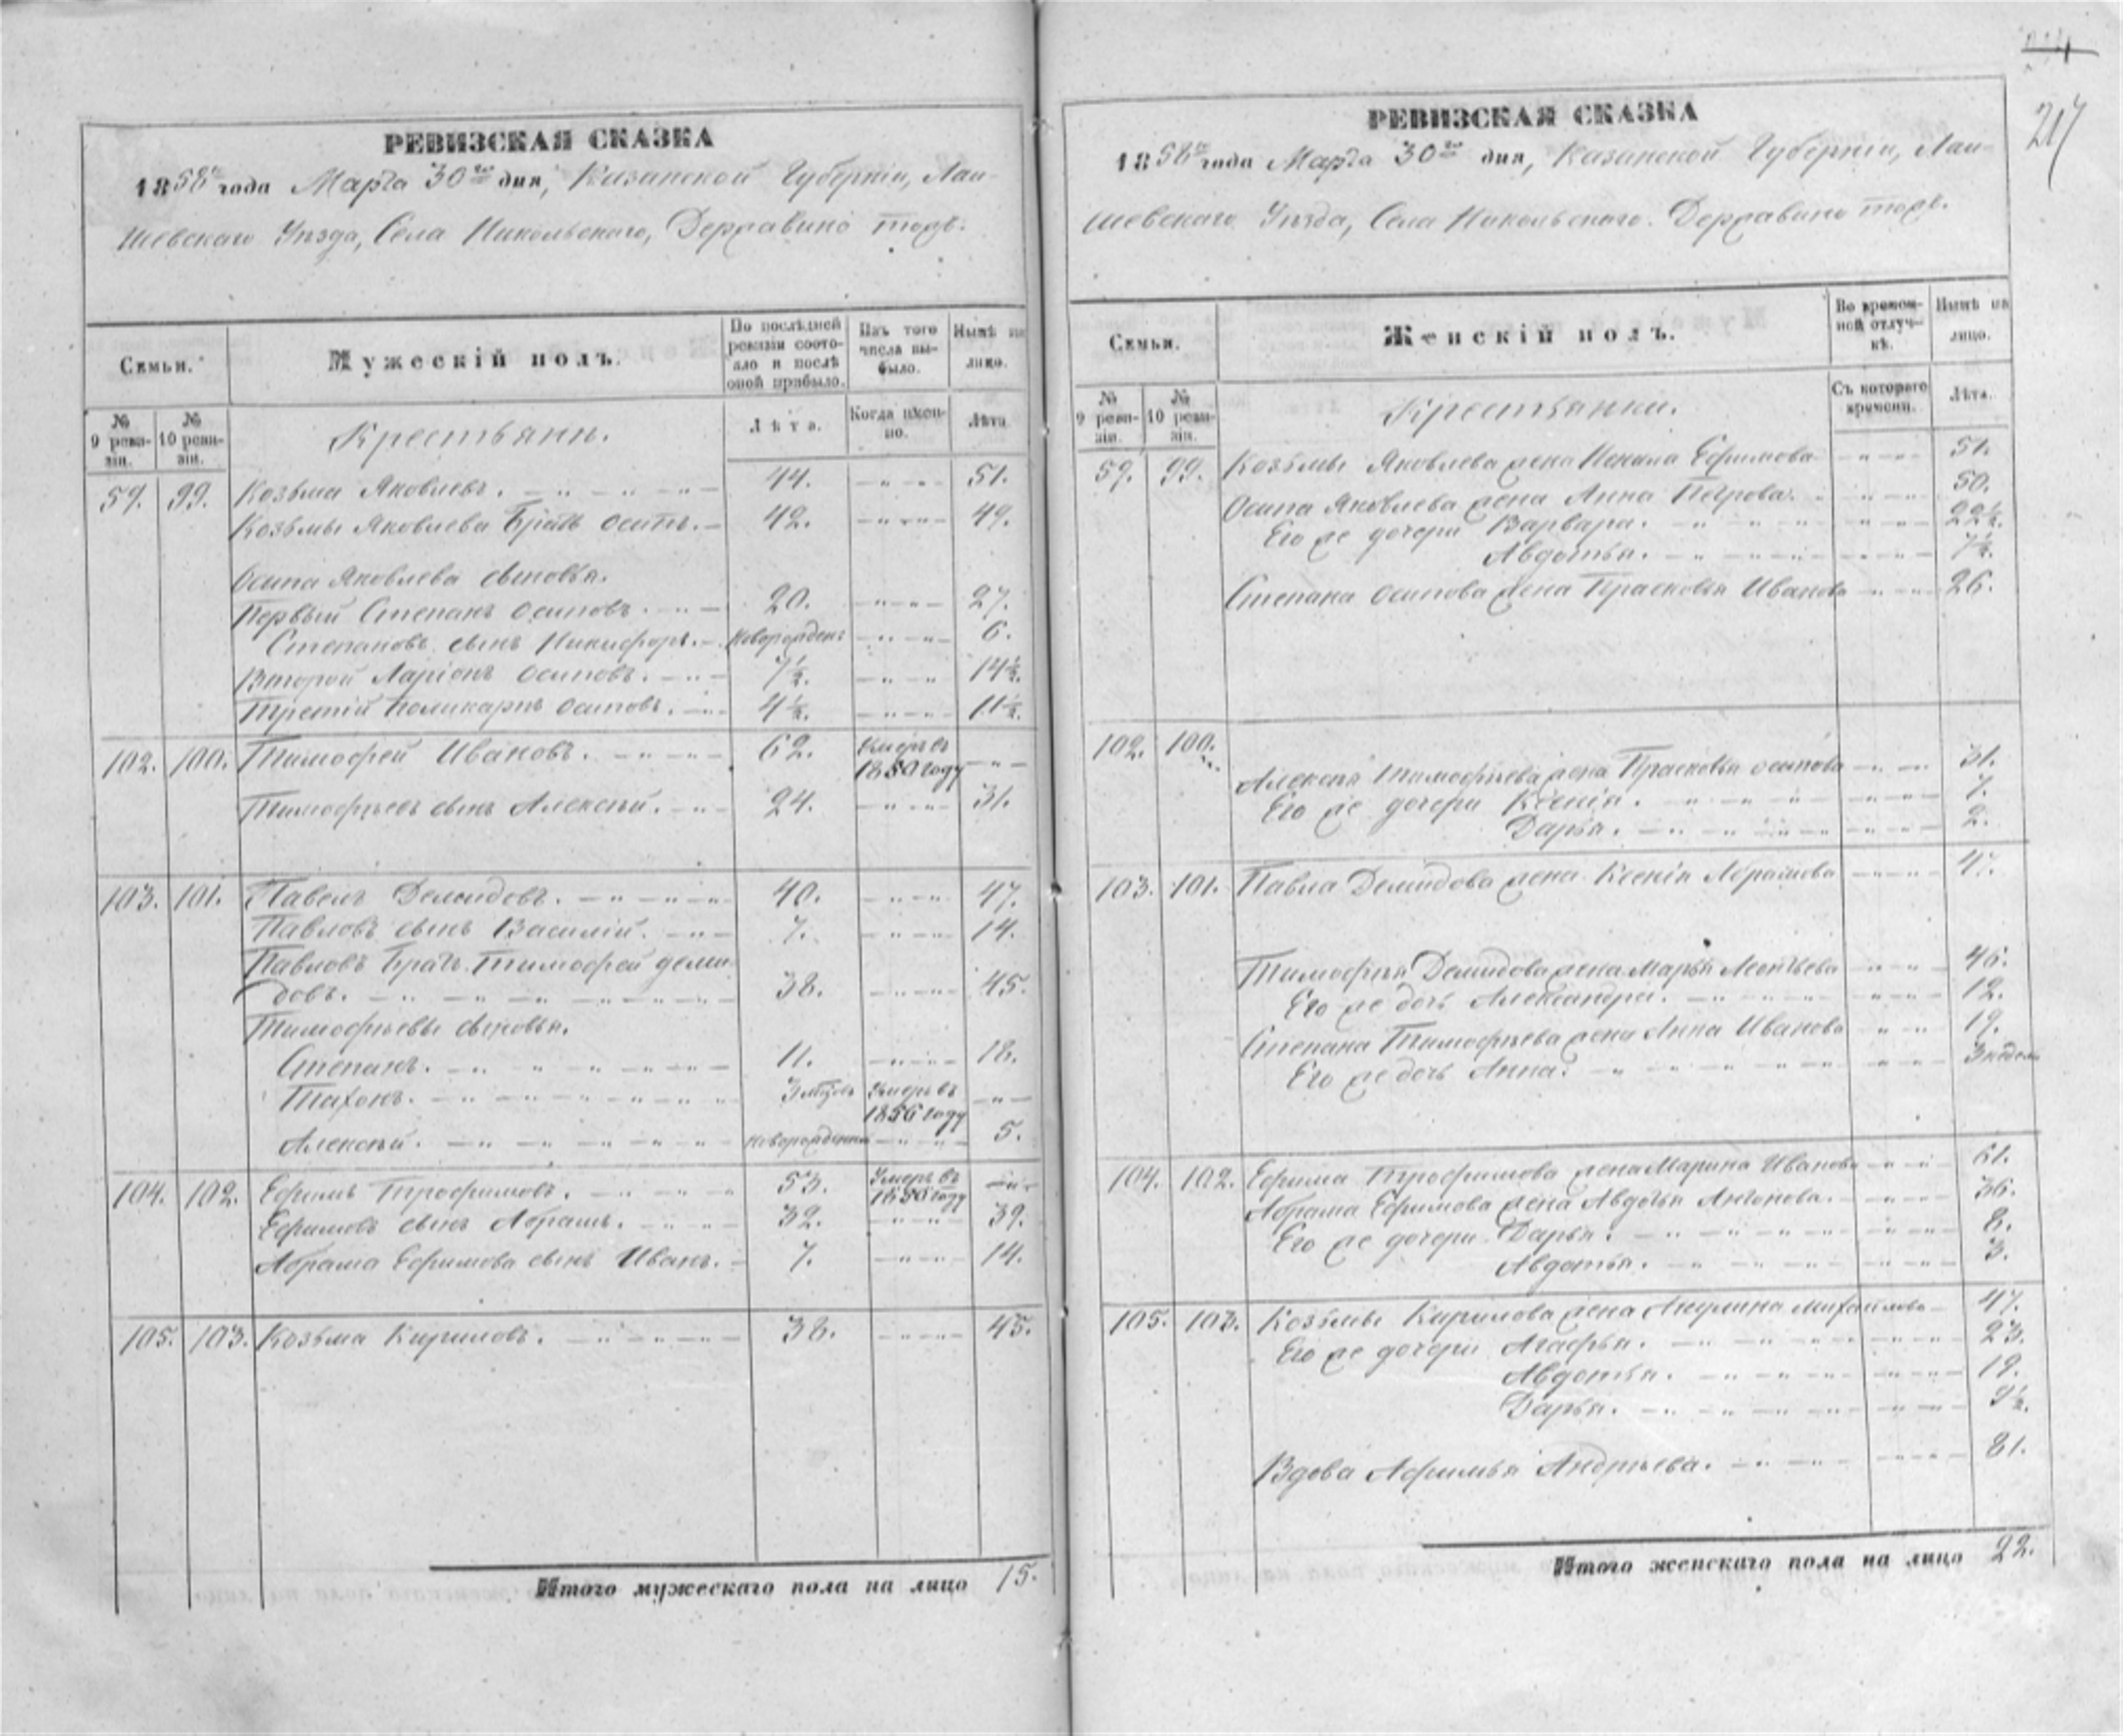 217
РЕВИЗСКАЯ СКАЗКА
1858го года Марта 30го дня, Казанской Губерніи, Лаи-
шевскаго Уѣзда, Села Никольскаго, Державино тожъ.
Семьи.
Мужескій полъ.
По послѣдней ревизіи состояло и послѣ оной прибыло.
Изъ того числа выбыло.
Нынѣ на лицо.
№ 9 ревизіи.
№ 10 ревизіи.
Крестьяне.
Лѣта.
Когда именно.
Лѣта.
57. 99. Козьма Яковлевъ. 44. 51.
Козьмы Яковлева братъ Осипъ. 42. 49.
Осипа Яковлева сыновья.
Первый Степанъ Осиповъ. 20. 27.
Степановъ сынъ Никифоръ. новорожденъ 6.
Второй Ларіонъ Осиповъ. 7½. 14½.
Третій Поликарпъ Осиповъ. 4½. 11½.
102. 100. Тимофей Ивановъ. 62. Умеръ въ
1850 году
Тимофѣевъ сынъ Алексѣй. 24. 31.
103. 101. Павелъ Демидовъ. 40. 47.
Павловъ сынъ Василій. 7. 14.
Павловъ братъ Тимофей Деми-
довъ. 38. 45.
Тимофѣевы сыновья.
Степанъ. 11. 18.
Тихонъ. Умеръ въ
1856 году
Алексѣй. новорожденъ 5.
104. 102. Ефимъ Трофимовъ. 53. Умеръ въ
году
Ефимовъ сынъ Абрамъ. 32. 39.
Абрама Ефимова сынъ Иванъ. 7. 14.
105. 103. Козьма Кириловъ. 38. 45.
Итого мужескаго пола на лицо 15.
РЕВИЗСКАЯ СКАЗКА
1858го года Марта 30го дня, Казанской Губерніи, Лаи-
шевскаго Уѣзда, Села Никольскаго. Державино тожъ.
Семьи.
Женскій полъ.
Во временной отлучкѣ.
Нынѣ на лицо.
№ 9 ревизіи.
№ 10 ревизіи.
Крестьянки.
Съ котораго времени.
Лѣта.
57. 99. Козьмы Яковлева жена Ефимова 51.
Осипа Яковлева жена Анна Петрова. 50.
Его же дочери Варвара. 22½.
Авдотья. 7½.
Степана Осипова жена Прасковья Иванова 26.
102. 100.
Алексѣя Тимофѣева жена Прасковья Осипова 31.
Его же дочери Ксенія. 7.
Дарья. 2.
103. 101. Павла Демидова жена Ксенія Абрамова 47.
Тимофея Демидова жена Марья Леонтьева 46.
Его же дочь Александра. 12.
Степана Тимофѣева жена Анна Иванова 19.
Его же дочь Анна. 3 недели
104. 102. Ефима Трофимова жена Марина Иванова 61.
Абрама Ефимова жена Авдотья Антонова. 36.
Его же дочери Дарья. 8.
Авдотья. 3.
105. 103. Козьмы Кирилова жена Акулина Михайлова 47.
Его же дочери Агафья. 23.
Авдотья. 19.
Дарья. 9½.
Вдова Афимья Андрѣева. 81.
Итого женскаго пола на лицо 22.